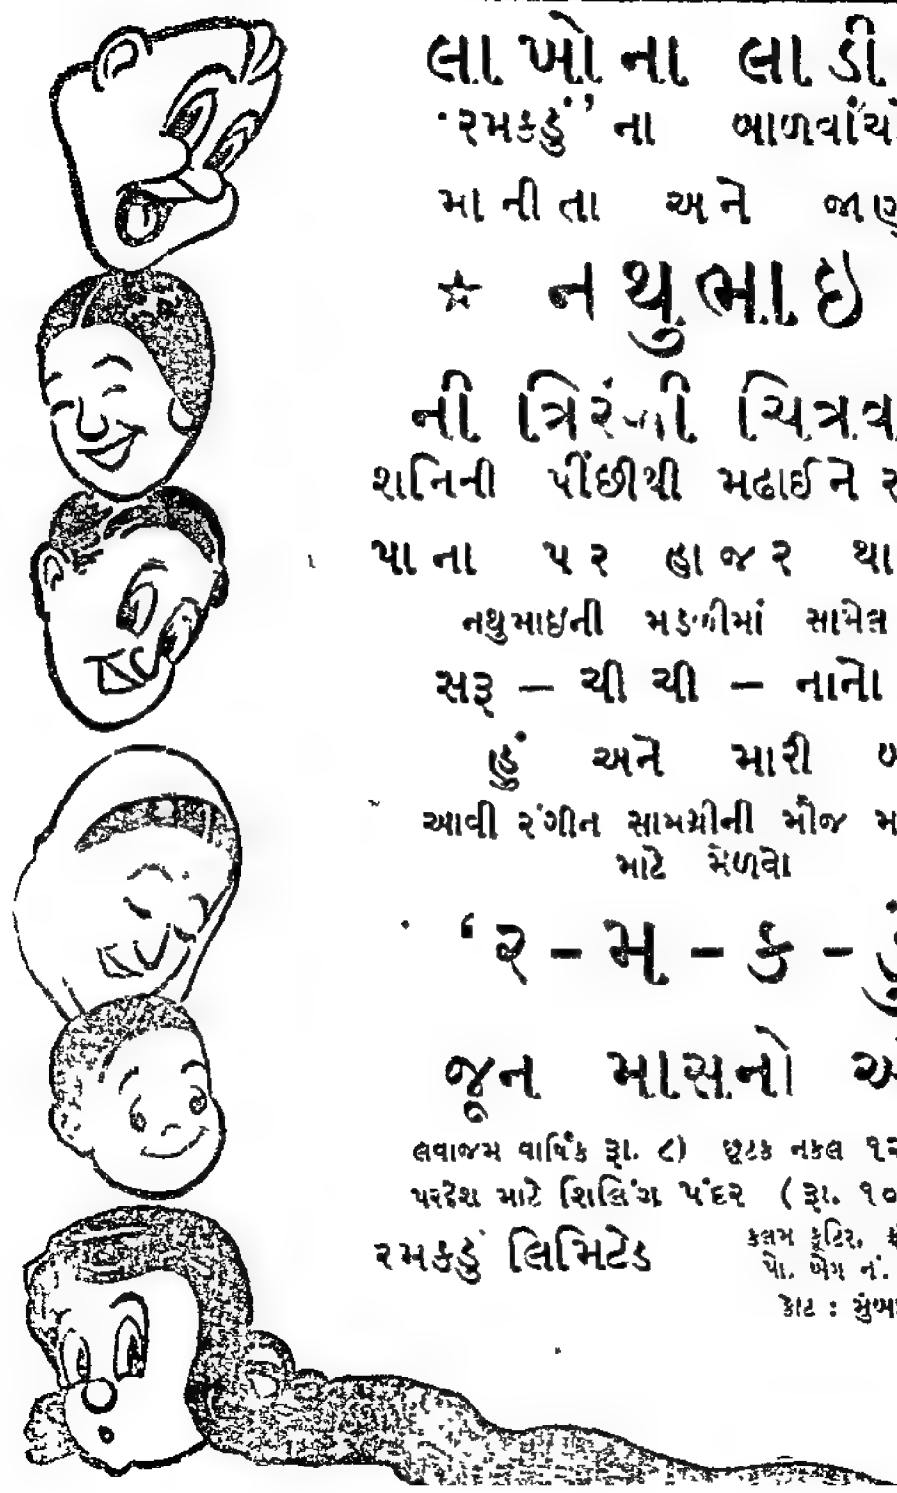 લાખોના લાડી
'રમકડું' ના બાળવાંચ
માનીતા અને જાણ
☆ નથુભાઇ
ની ત્રિરંગી ચિત્રવ
શનિની પીંછીથી મઢાઈને ર
પાના પર હાજર થા
નથુભાઇની મડળીમાં સામેલ
સરૂ – ચીચી – નાનો
હું અને મારી બ
આવી રંગીન સામગ્રીની મૌજ મ
માટે મેળવો
'ર-મ-ક-ડું
જૂન માસનો અં
લવાજમ વાર્ષિક રૂા. ૮) છૂટક નકલ ૧૨
પરદેશ માટે શિલિંગ પંદર (રૂા. ૧૦
રમકડું લિમિટેડ
કલમ કૂટિર,
પો. બેગ નં.
કોટ : મુંબઇ